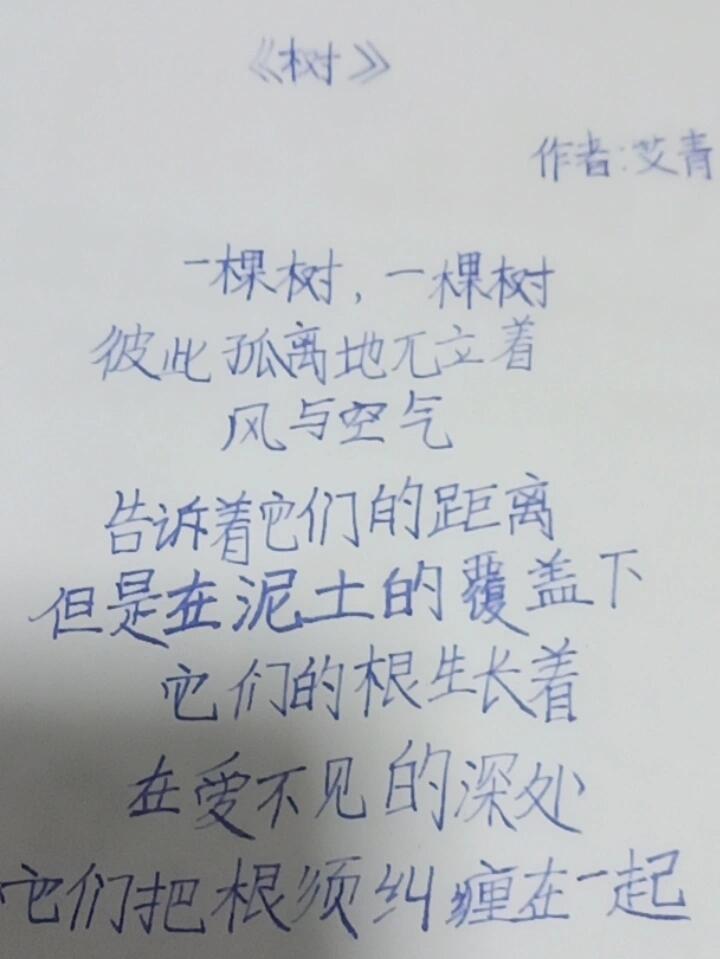 《树》
作者:艾青
一棵树,一棵树
彼此孤离地兀立着
风与空气
告诉着它们的距离
但是在泥土的覆盖下
它们的根生长着
在爱不见的深处
它们把根须纠缠在一起